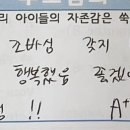 리 아이들의 자존감은 쑥
조바심 갖지
행복했음 좋겠어
!! A+